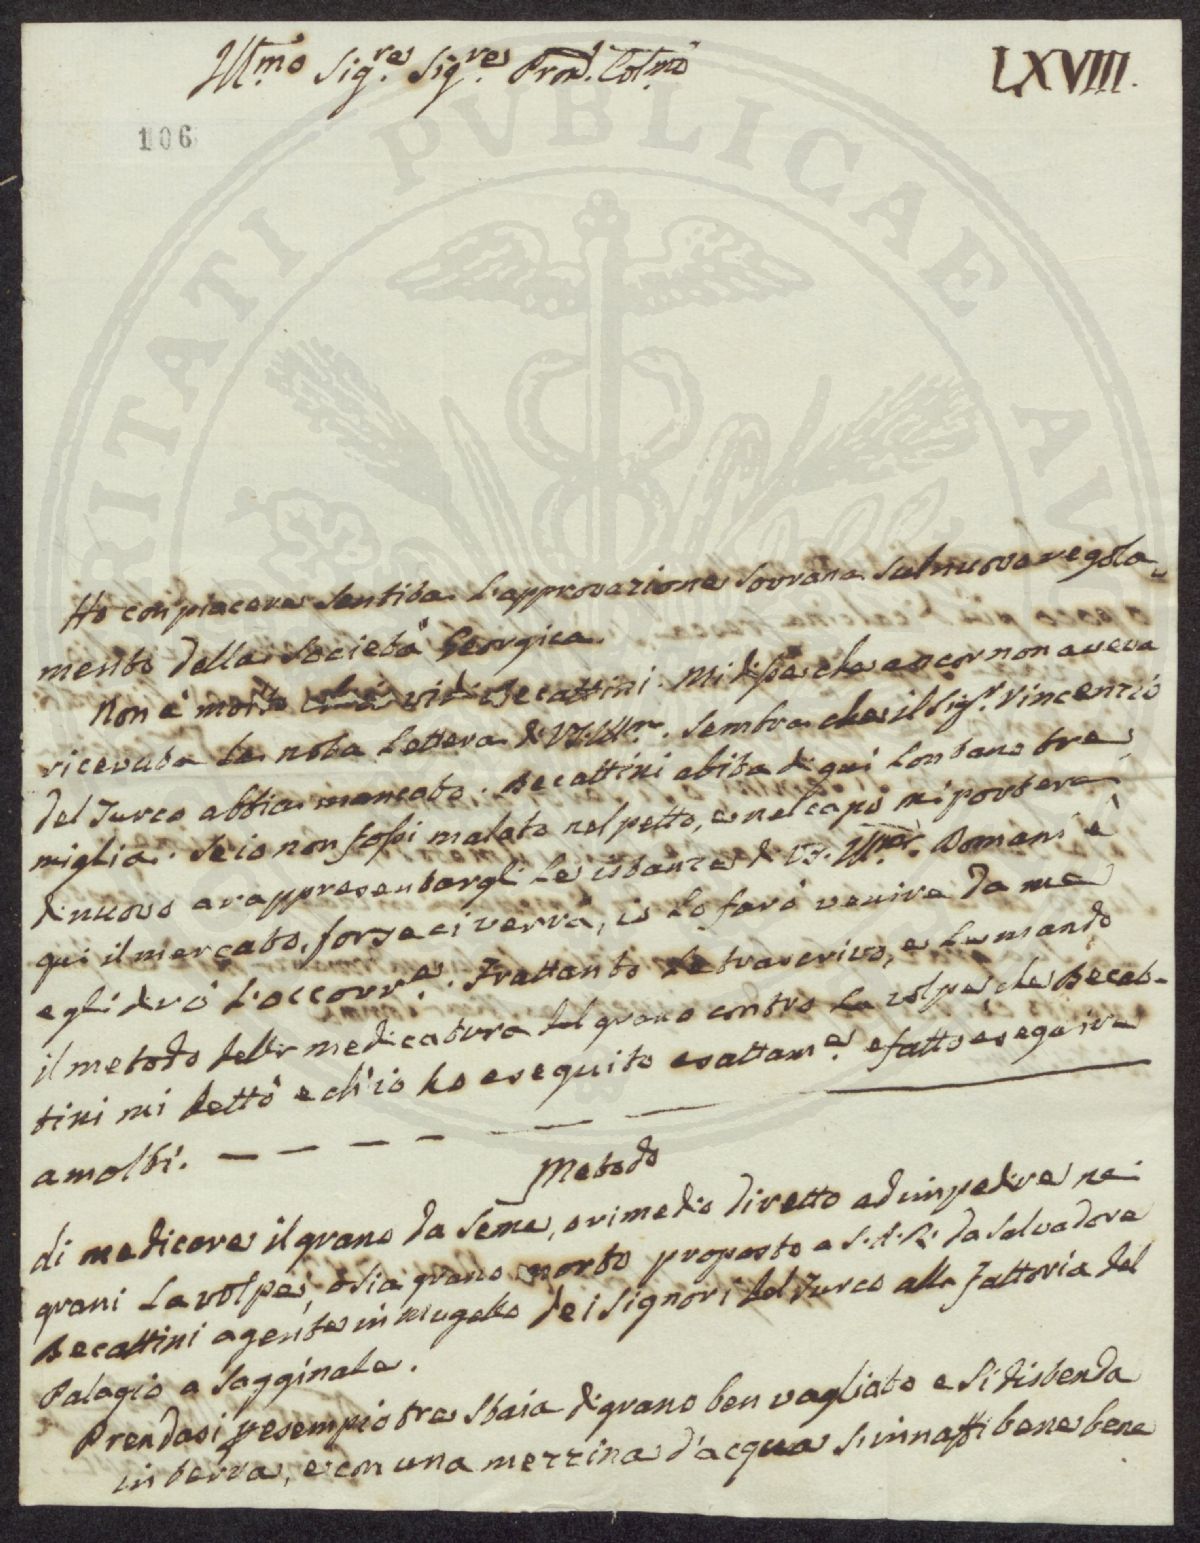 Ill.mo Sig.re Sig.re Pron. Col.mo
LXVIII.
106
PVBLICAE
Ho con piacere sentita l'approvazione Sovrana sul nuovo regola-
mento della Società Georgica.
Non è morto Becattini. Mi disse che ancor non aveva
ricevuta la nota lettera di VS. Ill.ma. Sembra che il Sig.r Vincenzio
del Turco abbia mancato. Becattini abita di qui lontano tre
miglia. Se io non fossi malato nel petto, e nel capo mi porterei
di nuovo a rappresentargli le istanze di VS. Ill.ma. Domani è
qui il mercato, forse ci verrà, io lo farò venire da me
e gli dirò l'occorr.e. Frattanto le trascrivo, e le mando
il metodo della medicatura del grano contro la volpe, che Becat-
tini mi dettò e ch'io ho eseguito esattam.e e fatto eseguire
a molti.
Metodo
di medicare il grano da seme, o rimedio diretto ad impedire nei
grani la volpe, o sia grano morto proposto a S.A.R. da Salvadore
Becattini agente in Mugello dei Signori del Turco alla Fattoria del
Palagio a Sagginale.
Prendasi p esempio tre staia di grano ben vagliato e si distenda
in terra, e con una mezzina d'acqua s'innaffi bene bene